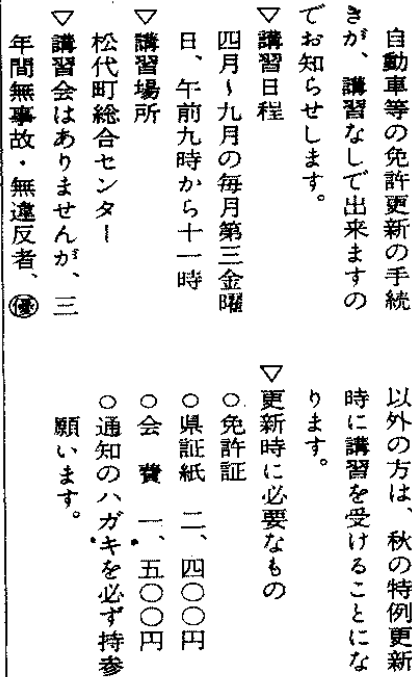 自動車等の免許更新の手続
きが、講習なしで出来ますの
でお知らせします。
▽講習日程
四月〜九月の毎月第三金曜
日、午前九時から十一時
▽講習場所
松代町総合センター
▽講習会はありませんが、三
年間無事故・無違反者、㊝
以外の方は、秋の特例更新
時に講習を受けることにな
ります。
▽更新時に必要なもの
○免許証
○県証紙 二、四〇〇円
○会 費 一、五〇〇円
○通知のハガキを必ず持参
願います。